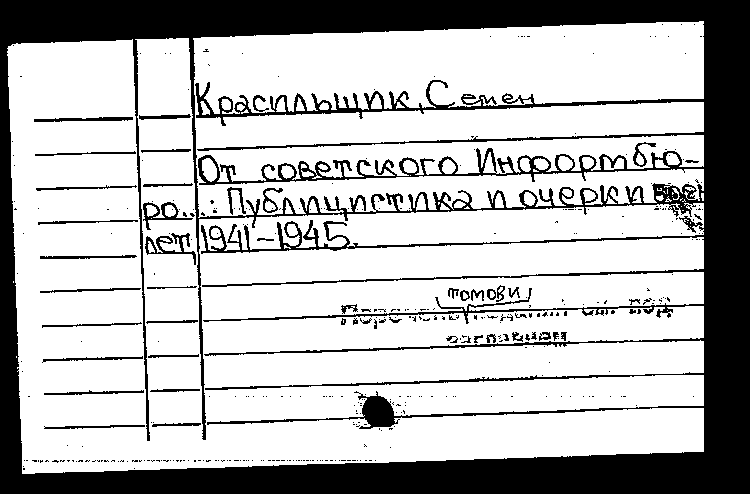 Красильщик, Семен
От советского Информбю-
ро...: Публицистика и очерки воен
лет, 1941-1945.
томови
Перечень изданий см. под
заглавием